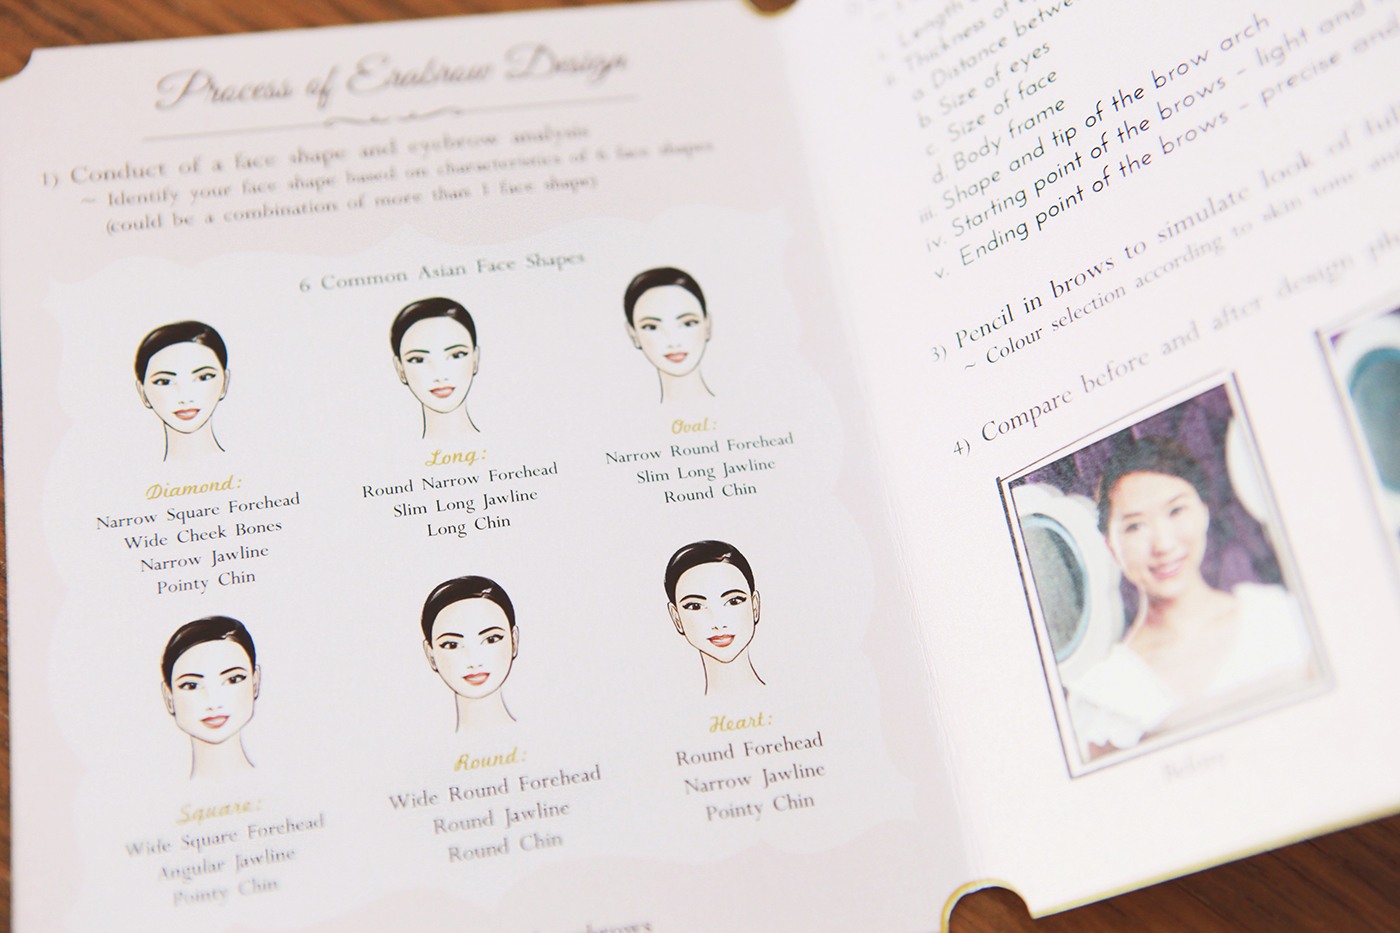 Process of Erabrow Design
1) Conduct of a face shape and eyebrow analysis
~ Identify your face shape based on characteristics of 6 face shapes
(could be a combination of more than 1 face shape)
6 Common Asian Face Shapes
Diamond:
Narrow Square Forehead
Wide Cheek Bones
Narrow Jawline
Pointy Chin
Long:
Round Narrow Forehead
Slim Long Jawline
Long Chin
Oval:
Narrow Round Forehead
Slim Long Jawline
Round Chin
Square:
Wide Square Forehead
Angular Jawline
Pointy Chin
Round:
Wide Round Forehead
Round Jawline
Round Chin
Heart:
Round Forehead
Narrow Jawline
Pointy Chin
i. Length
ii. Thickness of
a. Distance between
b. Size of eyes
c. Size of face
d. Body frame
iii. Shape and tip of the brow arch
iv. Starting point of the brows - light and
v. Ending point of the brows - precise and
3) Pencil in brows to simulate look of full
~ Colour selection according to skin tone and
4) Compare before and after design
Before